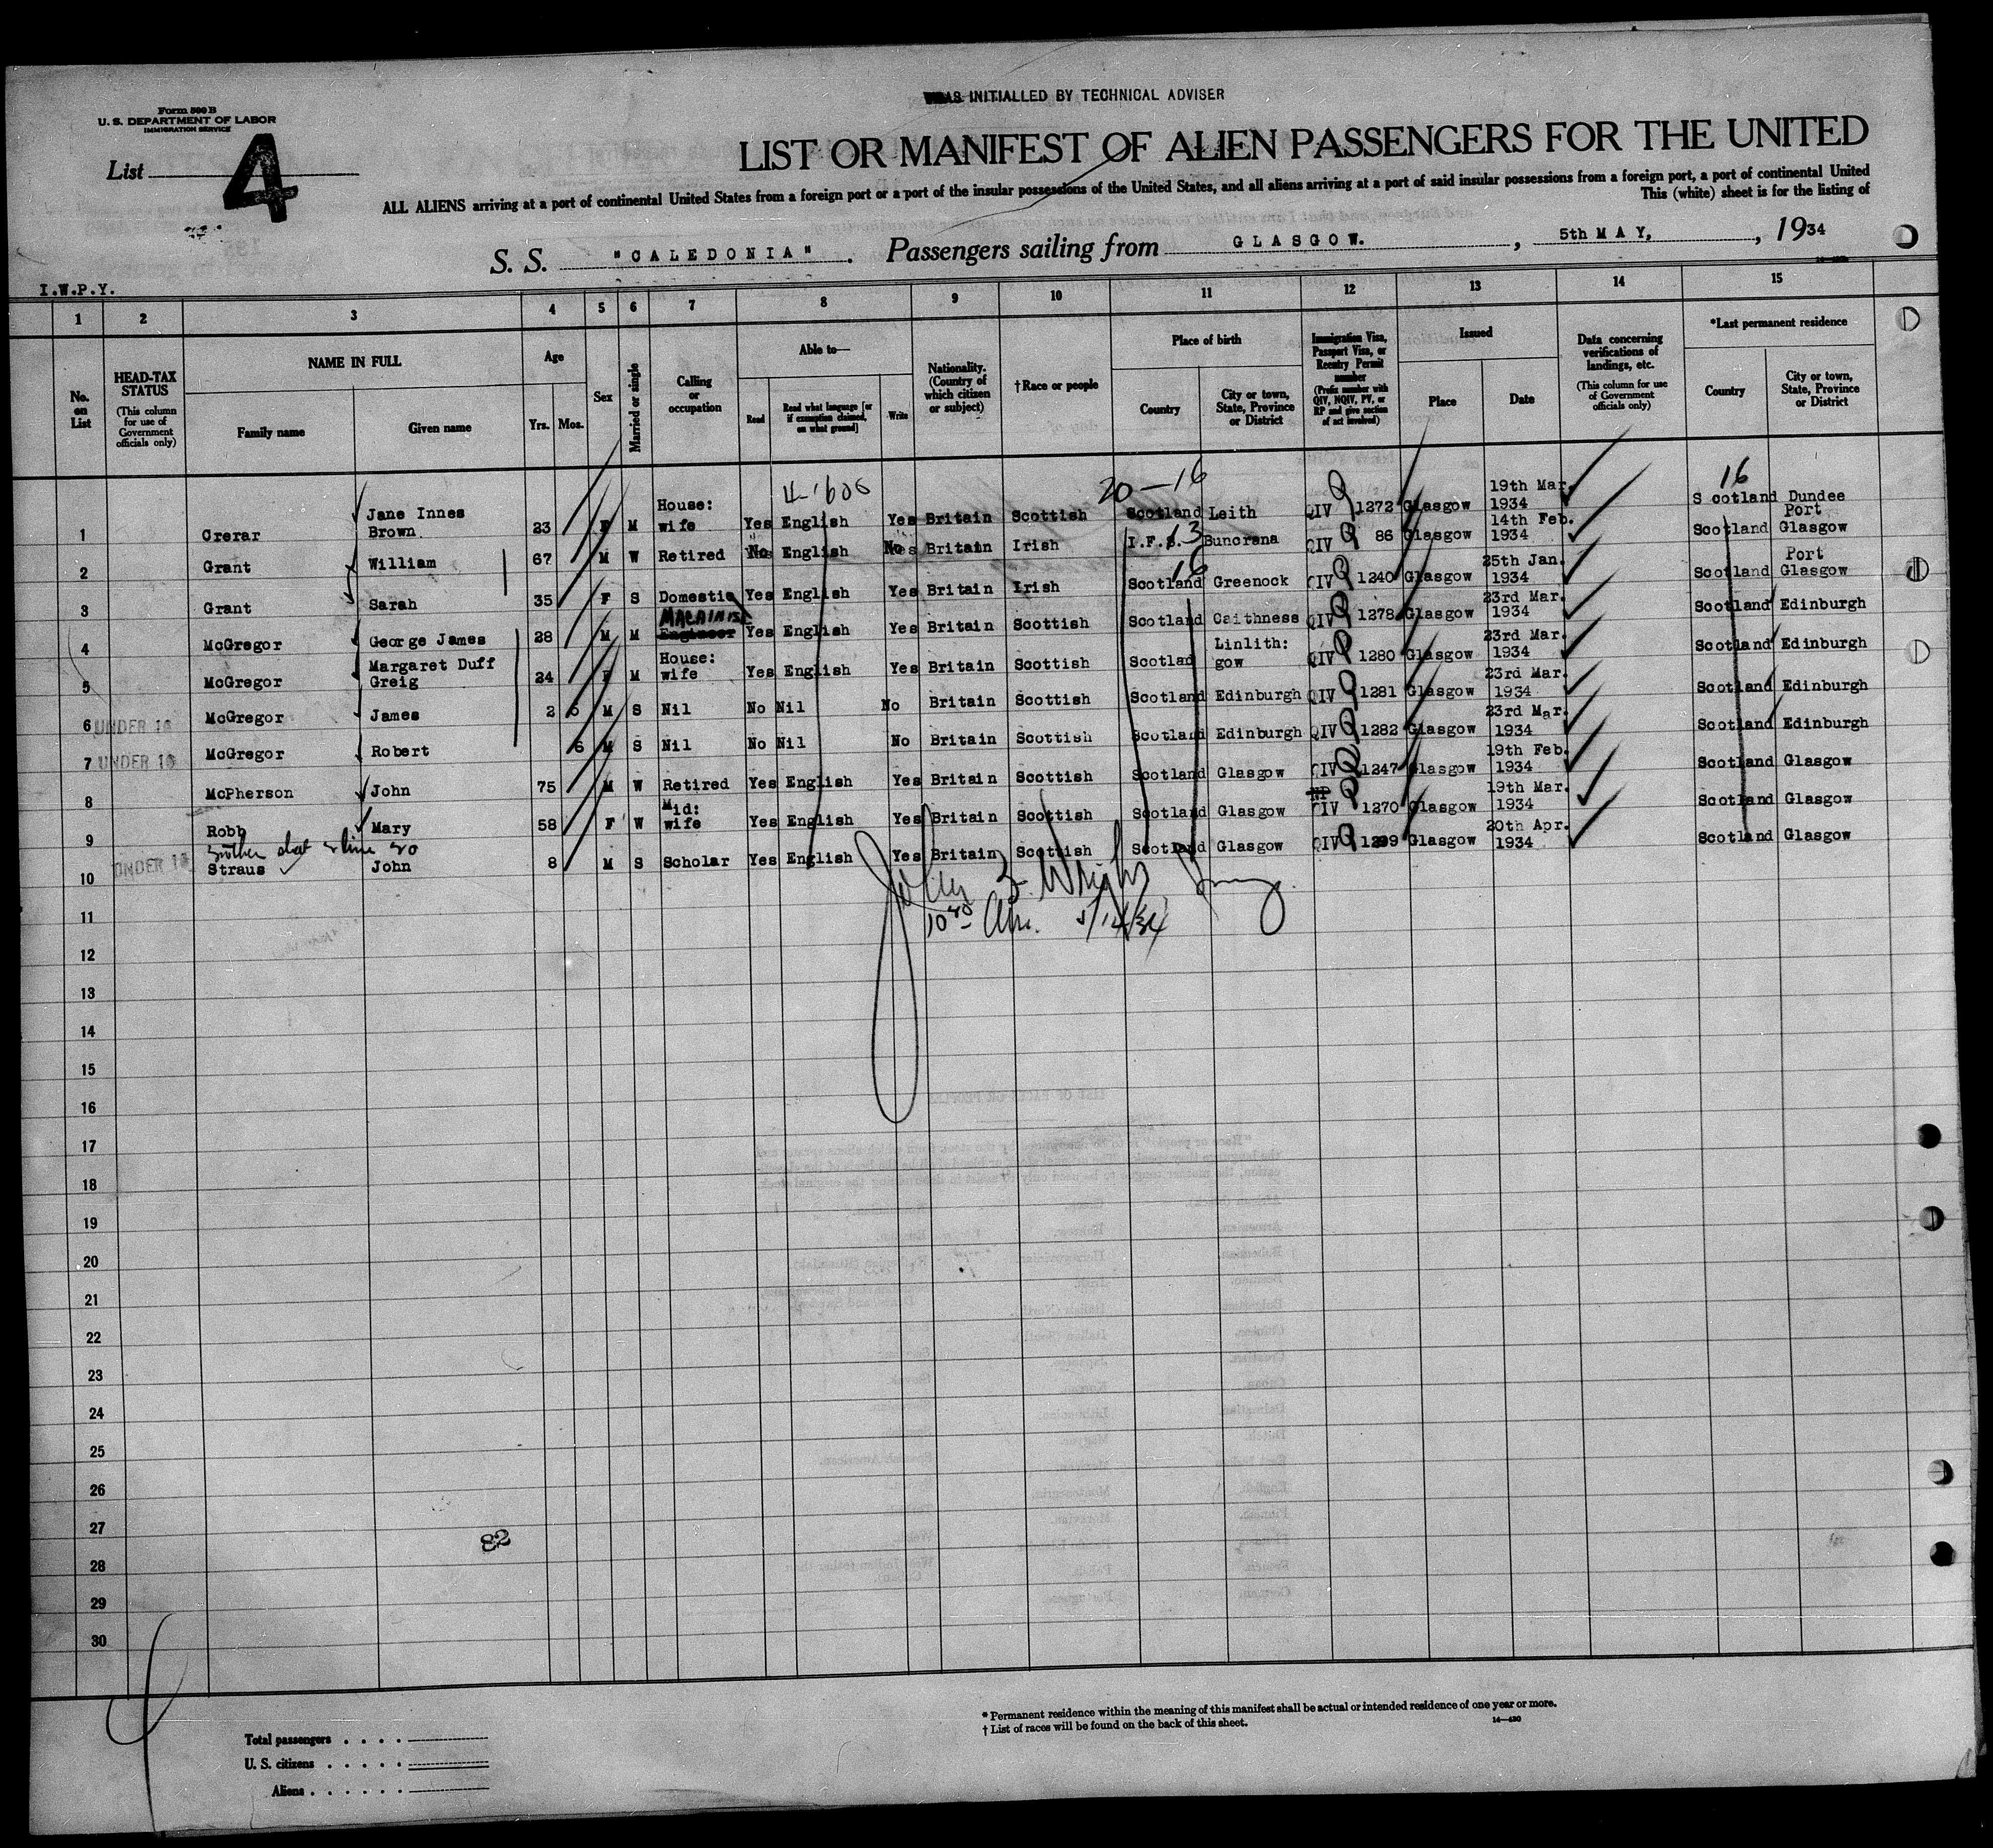 Form 500 B
U. S. DEPARTMENT OF LABOR
IMMIGRATION SERVICE
INITIALLED BY TECHNICAL ADVISER
List 4
LIST OR MANIFEST OF ALIEN PASSENGERS FOR THE UNITED
ALL ALIENS arriving at a port of continental United States from a foreign port or a port of the insular possessions of the United States, and all aliens arriving at a port of said insular possessions from a foreign port, a port of continental United
This (white) sheet is for the listing of
S. S. "CALEDONIA". Passengers sailing from GLASGOW. , 5th MAY, , 1934
I.W.P.Y.
1 2 3 4 5 6 7 8 9 10 11 12 13 14 15
No. on List
HEAD-TAX STATUS (This column for use of Government officials only)
NAME IN FULL Family name Given name
Age Yrs. Mos.
Sex
Married or single
Calling or occupation
Able to— Read Read what language [or if exemption claimed, on what ground] Write
Nationality. (Country of which citizen or subject)
† Race or people
Place of birth Country City or town, State, Province or District
Immigration Visa, Passport Visa, or Reentry Permit number (Prefix number with QIV, NQIV, PV, or RP and give section of act involved)
Issued Place Date
Data concerning verifications of landings, etc. (This column for use of Government officials only)
*Last permanent residence Country City or town, State, Province or District
20-16 16
1 Crerar Jane Innes Brown 23 F M House: wife Yes English Yes Britain Scottish Scotland Leith QIV 1272 Glasgow 19th Mar. 1934 Scotland Dundee
2 Grant William 67 M W Retired No English No Britain Irish I.F.S. 13 Buncrana QIV 86 Glasgow 14th Feb. 1934 Scotland Port Glasgow
3 Grant Sarah 35 F S Domestic Yes English Yes Britain Irish Scotland 16 Greenock QIV 1240 Glasgow 25th Jan. 1934 Scotland Port Glasgow
4 McGregor George James 28 M M MACHINIST Engineer Yes English Yes Britain Scottish Scotland Caithness QIV 1278 Glasgow 23rd Mar. 1934 Scotland Edinburgh
5 McGregor Margaret Duff Greig 24 F M House: wife Yes English Yes Britain Scottish Scotlad Linlith: gow QIV 1280 Glasgow 23rd Mar. 1934 Scotland Edinburgh
6 UNDER 16 McGregor James 2 6 M S Nil No Nil No Britain Scottish Scotland Edinburgh QIV 1281 Glasgow 23rd Mar. 1934 Scotland Edinburgh
7 UNDER 16 McGregor Robert 6 M S Nil No Nil No Britain Scottish Scotland Edinburgh QIV 1282 Glasgow 23rd Mar. 1934 Scotland Edinburgh
8 McPherson John 75 M W Retired Yes English Yes Britain Scottish Scotland Glasgow QIV 1247 Glasgow 19th Feb. 1934 Scotland Glasgow
9 Robb Mary 58 F W Mid: wife Yes English Yes Britain Scottish Scotland Glasgow QIV 1270 Glasgow 19th Mar. 1934 Scotland Glasgow
10 UNDER 16 Straus John 8 M S Scholar Yes English Yes Britain Scottish Scotland Glasgow QIV 1299 Glasgow 20th Apr. 1934 Scotland Glasgow
11
12
13
14
15
16
17
18
19
20
21
22
23
24
25
26
27
82
28
29
30
* Permanent residence within the meaning of this manifest shall be actual or intended residence of one year or more.
† List of races will be found on the back of this sheet.
Total passengers
U. S. citizens
Aliens